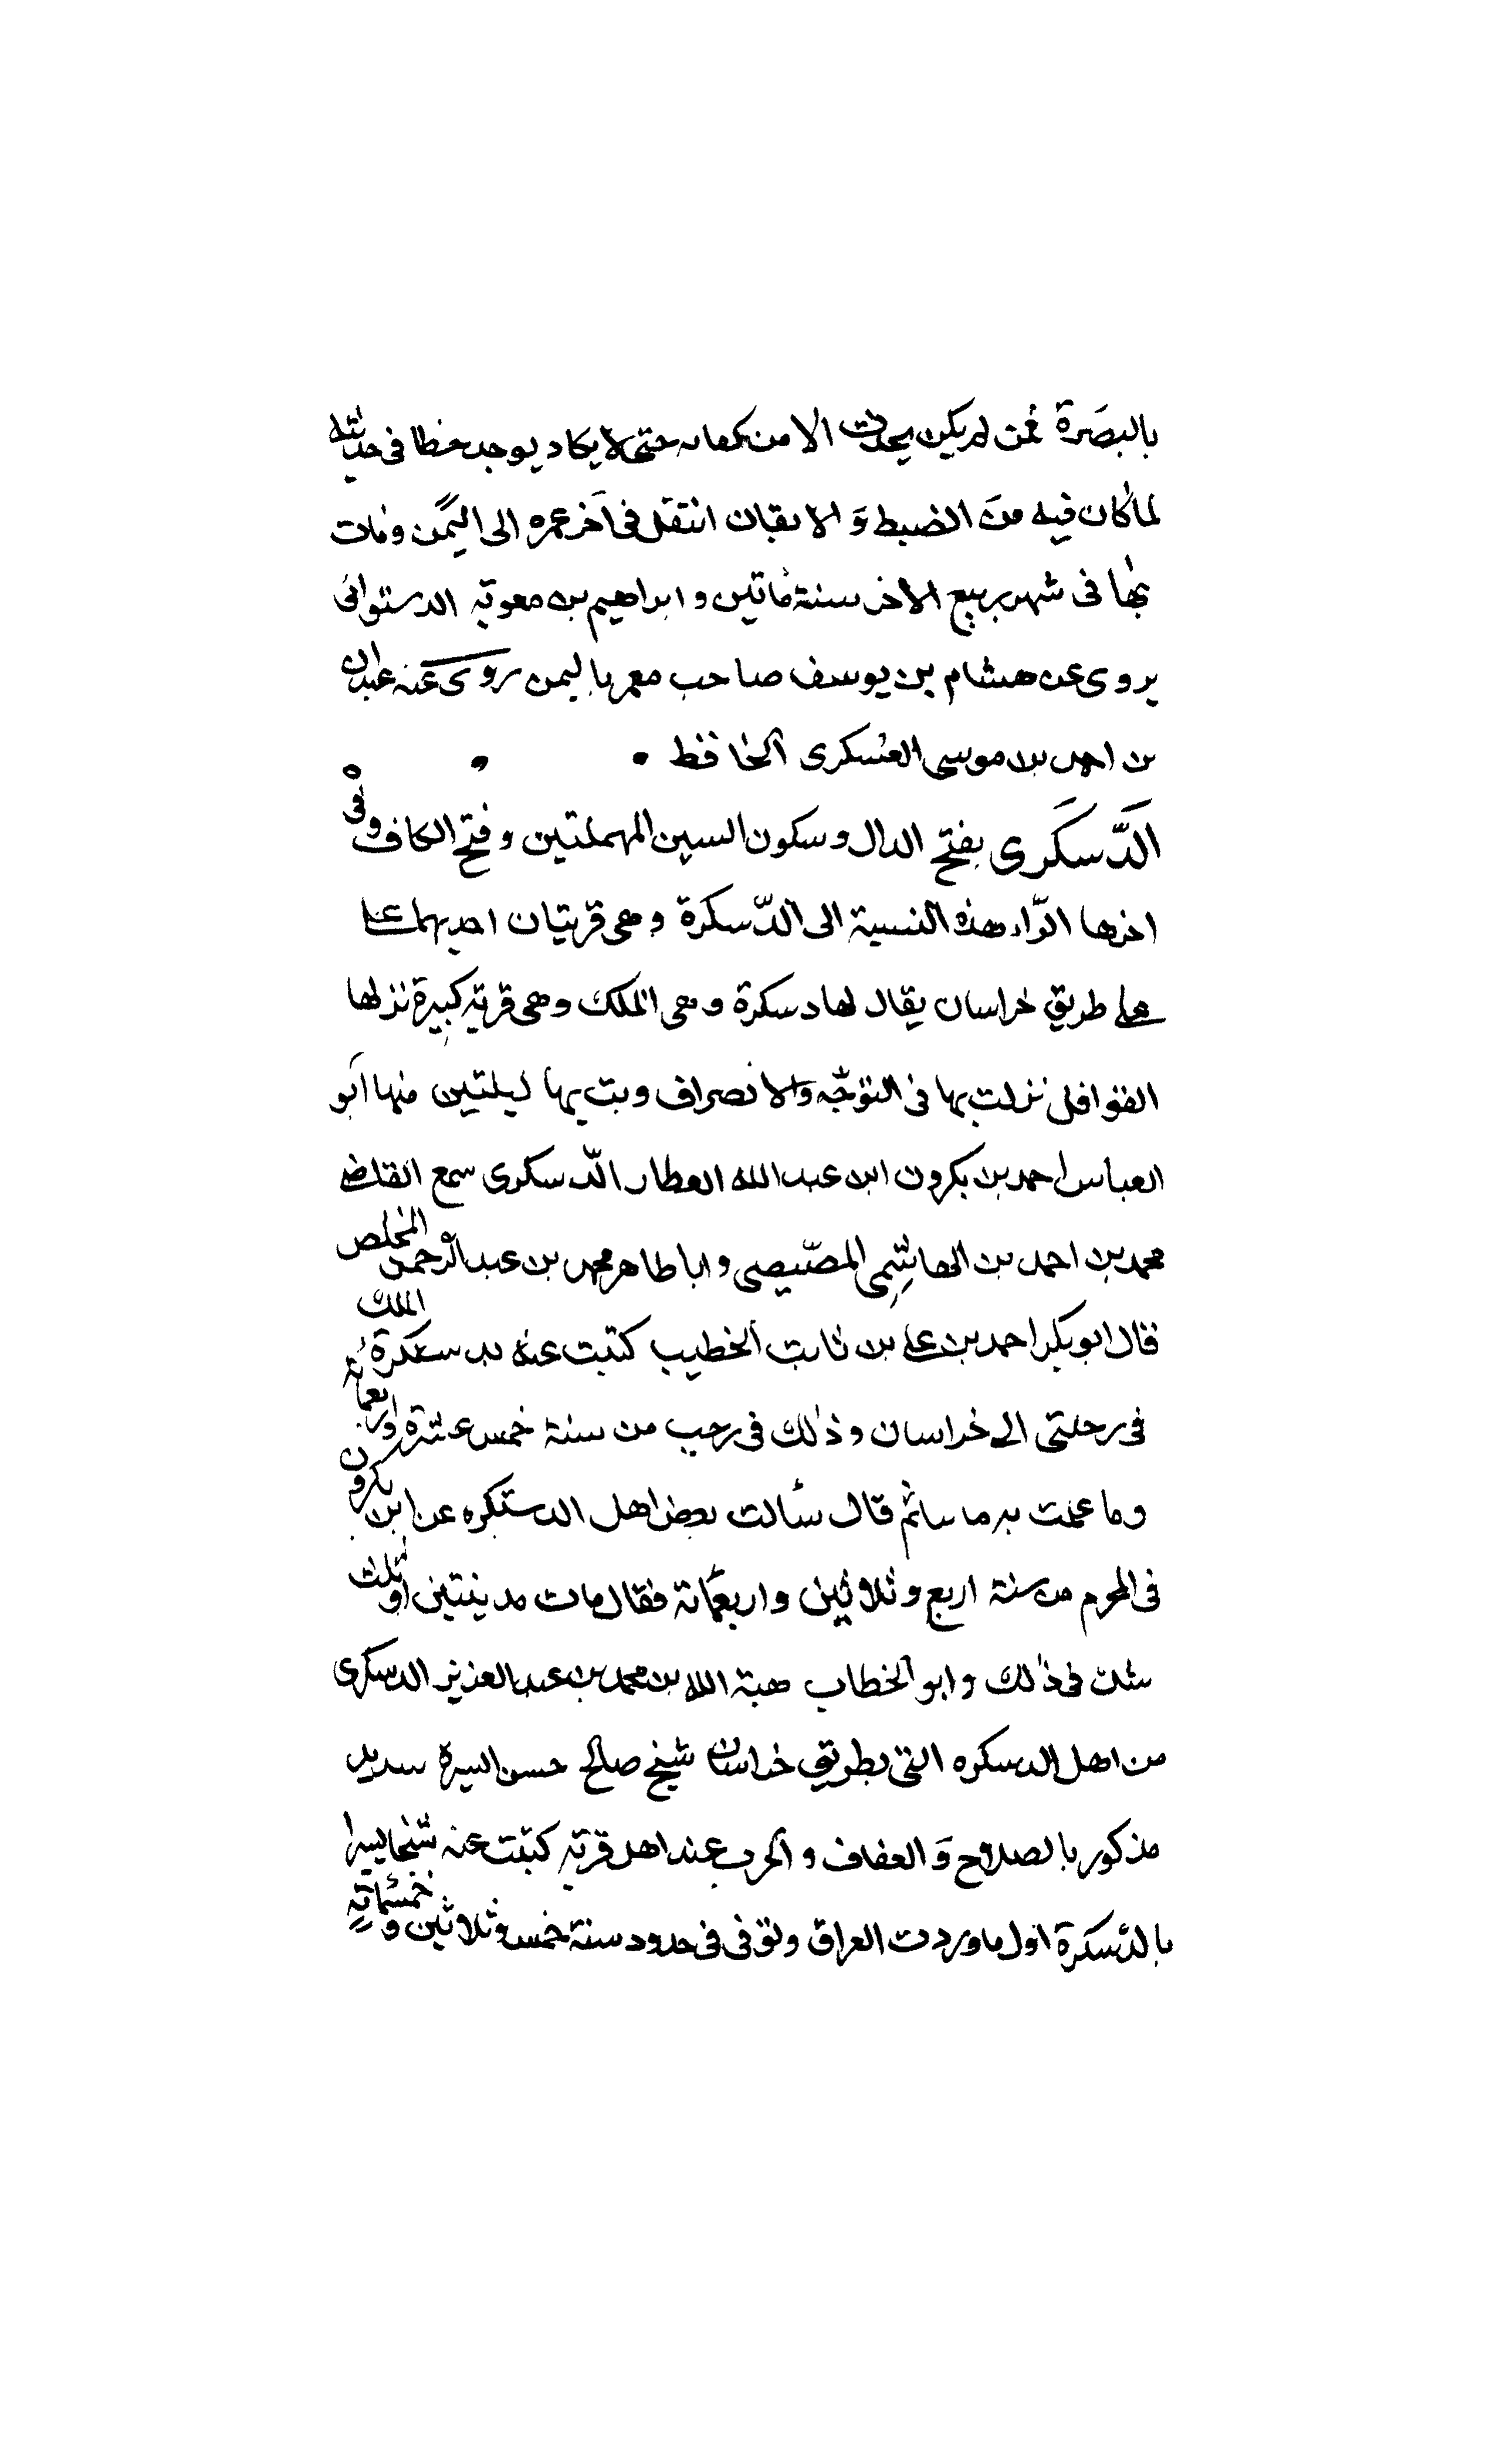 بالبصَرة ممن لم يكن يحدث الا من كتابه حتى لا يكاد يوجد خطا فى حديثه
لما كان فيه منَ الضبط وَ الاتقان انتقل فى آخر عمره الى اليمن ومات
بها فى شهر ربيع الاخر سنة ماتين و ابراهيم بن معوية الدستوائى
يروى عن هشام بن يوسف صاحب معمر باليمن روى عنه عبدان
بن احمد بن موسى العسكرى الحافظ
الدَّسكَرى بفتح الدال وسكون السين المهملتين وفتح الكاف وفى
اخرها الرّاء هذه النسبة الى الدّسكرة وهى قريتان احديهما
على طريق خراسان يقال لها دسكرة وهى الملك وهى قرية كبيرة نزلها
القوافل نزلت بها فى التوجّه والانصراف وبت بها ليلتين منها ابو
العباس احمد بن بكرون ابن عبد الله العطار الدّسكرى سمع القاضى
محمد بن احمد بن الهاشمى المصّيصى و ابا طاهر محمد بن عبد الرحمن المخلص
قال ابو بكر احمد بن على بن ثابت الخطيب كتبت عنه بدسكرة الملك
فى رحلتى الى خراسان وذلك فى رجب من سنة خمس عشرة واربعمائة
وما علمت به ما ساثم قال سألت بعض اهل الدستكره عن ابن بكرون
فى المحرم من سنة اربع وثلاثين واربعمائة فقال مات مدينتين او ثلث
شك فى ذلك وابو الخطاب هبة الله بن محمد بن عبد العزيز الدسكرى
من اهل الدسكره التى بطريق خراسان شيخ صالح حسن السيرة سديد
مذكور بالصلاح وَ العفاف و الحرب عند اهل قرية كتبت عنه شيخا يسيرا
بالدّسكرة اول ما وردت العراق وتوفى فى حدود سنة خمس وثلاثين وخمسمائة